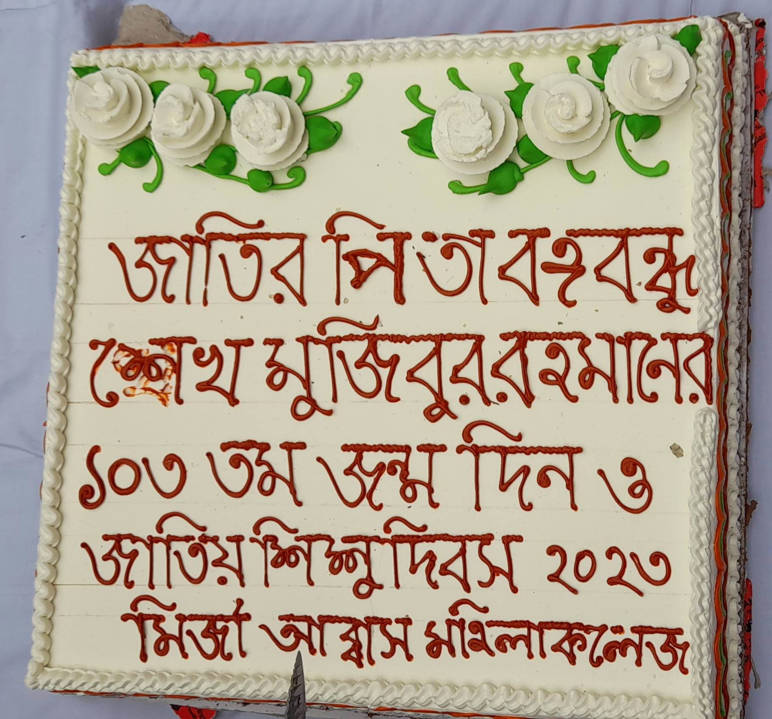 জাতির পিতা বঙ্গবন্ধু
শেখ মুজিবুর রহমানের
১০৩ তম জন্ম দিন ও
জাতিয় শিশু দিবস ২০২৩
মির্জা আব্বাস মহিলা কলেজ